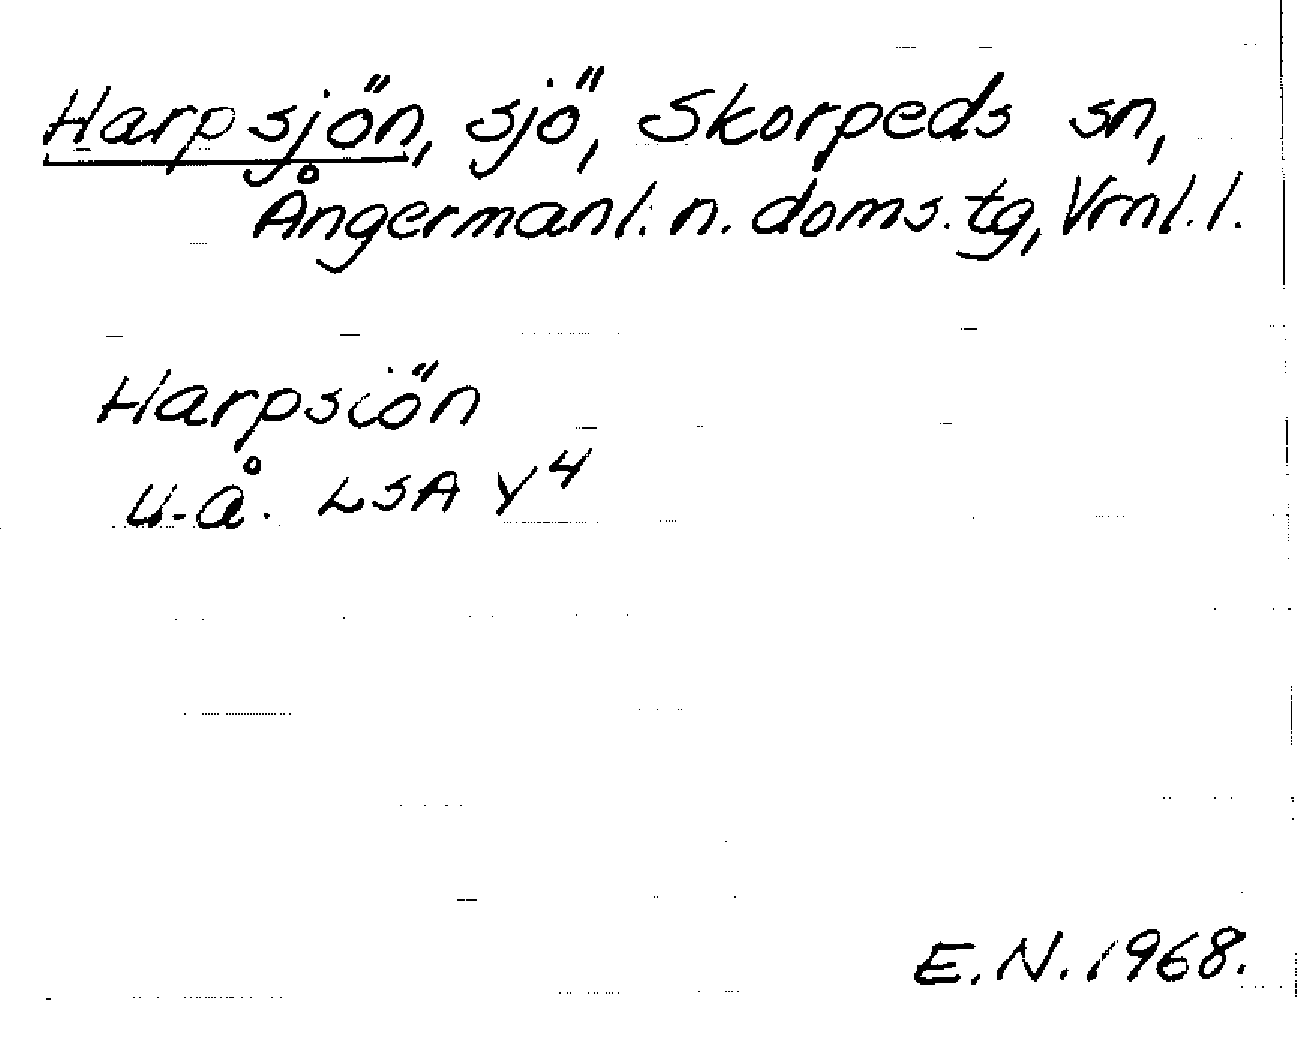 Harpsjön, sjö, Skorpeds sn,
Ångermanl. n. doms. tg, Vrnl. l.
Harpsiön
u.å. LSA Y4
E.N. 1968.